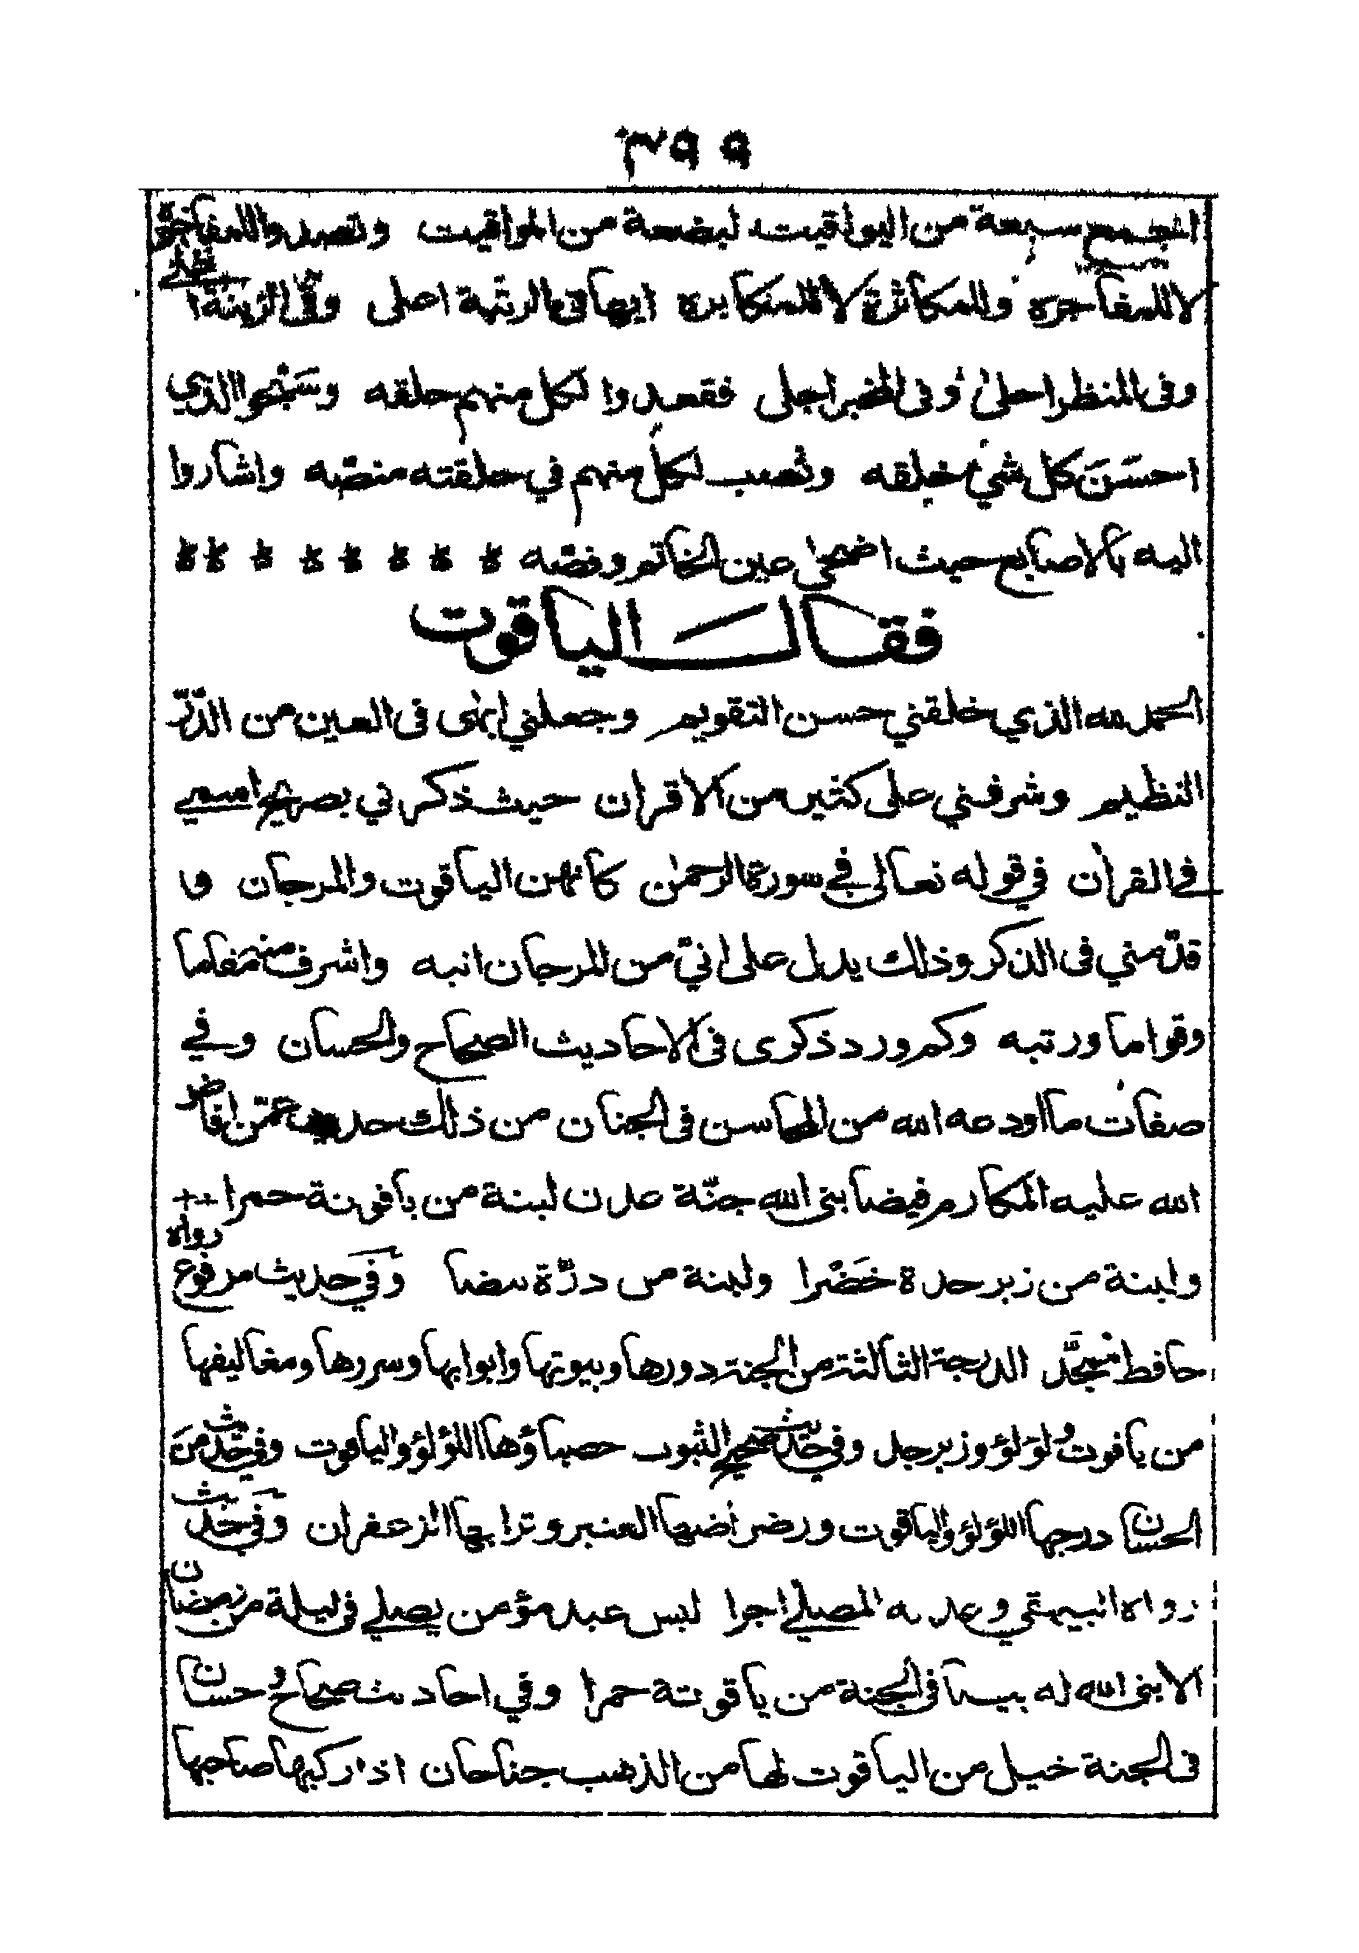 ٣٩٩
اجتمع سبعة من اليواقيت لبضعة من المواقيت وتصدوا للمفاخر
لا للمفاجره والمكاثرة لا للمكابره ايها في الرتبة اعلى وفي الزينة اغلى
وفي المنظر احلى وفي المخبر اجلى فقعدوا لكل منهم حلقه وسبحوا الذي
احسن كل شيء خلقه ونصب لكل منهم في حلقته منصّه واشاروا
اليه بالاصابع حيث اضحى عين الخاتم وفصّه * * * * * * * *
فقال الياقوت
الحمد لله الذي خلقني حسن التقويم وجعلني ابهى في العين من الدّرّ
النظيم وشرفني على كثير من الاقران حيث ذكر ني بصريح اسمي
في القرآن في قوله تعالى في سورة الرحمن كانهن الياقوت والمرجان و
قدّمني في الذكر وذلك يدل على انيّ من المرجان انبه واشرف منه مقاما
وقواما ورتبه وكم ورد ذكرى في الاحاديث الصحاح والحسان وفي
صفات ما اودعه الله من المحاسن في الجنان من ذلك حديث عمّن افاض
الله عليه المكارم فيضا بنى الله جنّة عدن لبنة من ياقوتة حمرا
ولبنة من زبرجدة خضرا ولبنة من درّة بيضا وفي حديث مرفوع رواه
حافظ مجّد الدرجة الثالثة من الجنة دورها وبيوتها وابوابها وسررها ومغاليقها
من ياقوت ولؤلؤ وزبرجل وفي حديث صحيح الثبوت حصباؤها اللؤلؤ والياقوت وفي حديث من
الحسان درجها اللؤلؤ والياقوت ورضراضها العنبر وترابها الزعفران وفي حديث
رواه البيهقي وعد به المصلي اجرا ليس عبد مؤمن يصلي في ليلة من رمضان
الا بنى الله له بيتا في الجنة من ياقوتة حمرا وفي احاديث صحاح وحسان
في الجنة خيل من الياقوت لها من الذهب جناحان اذا ركبها صاحبها